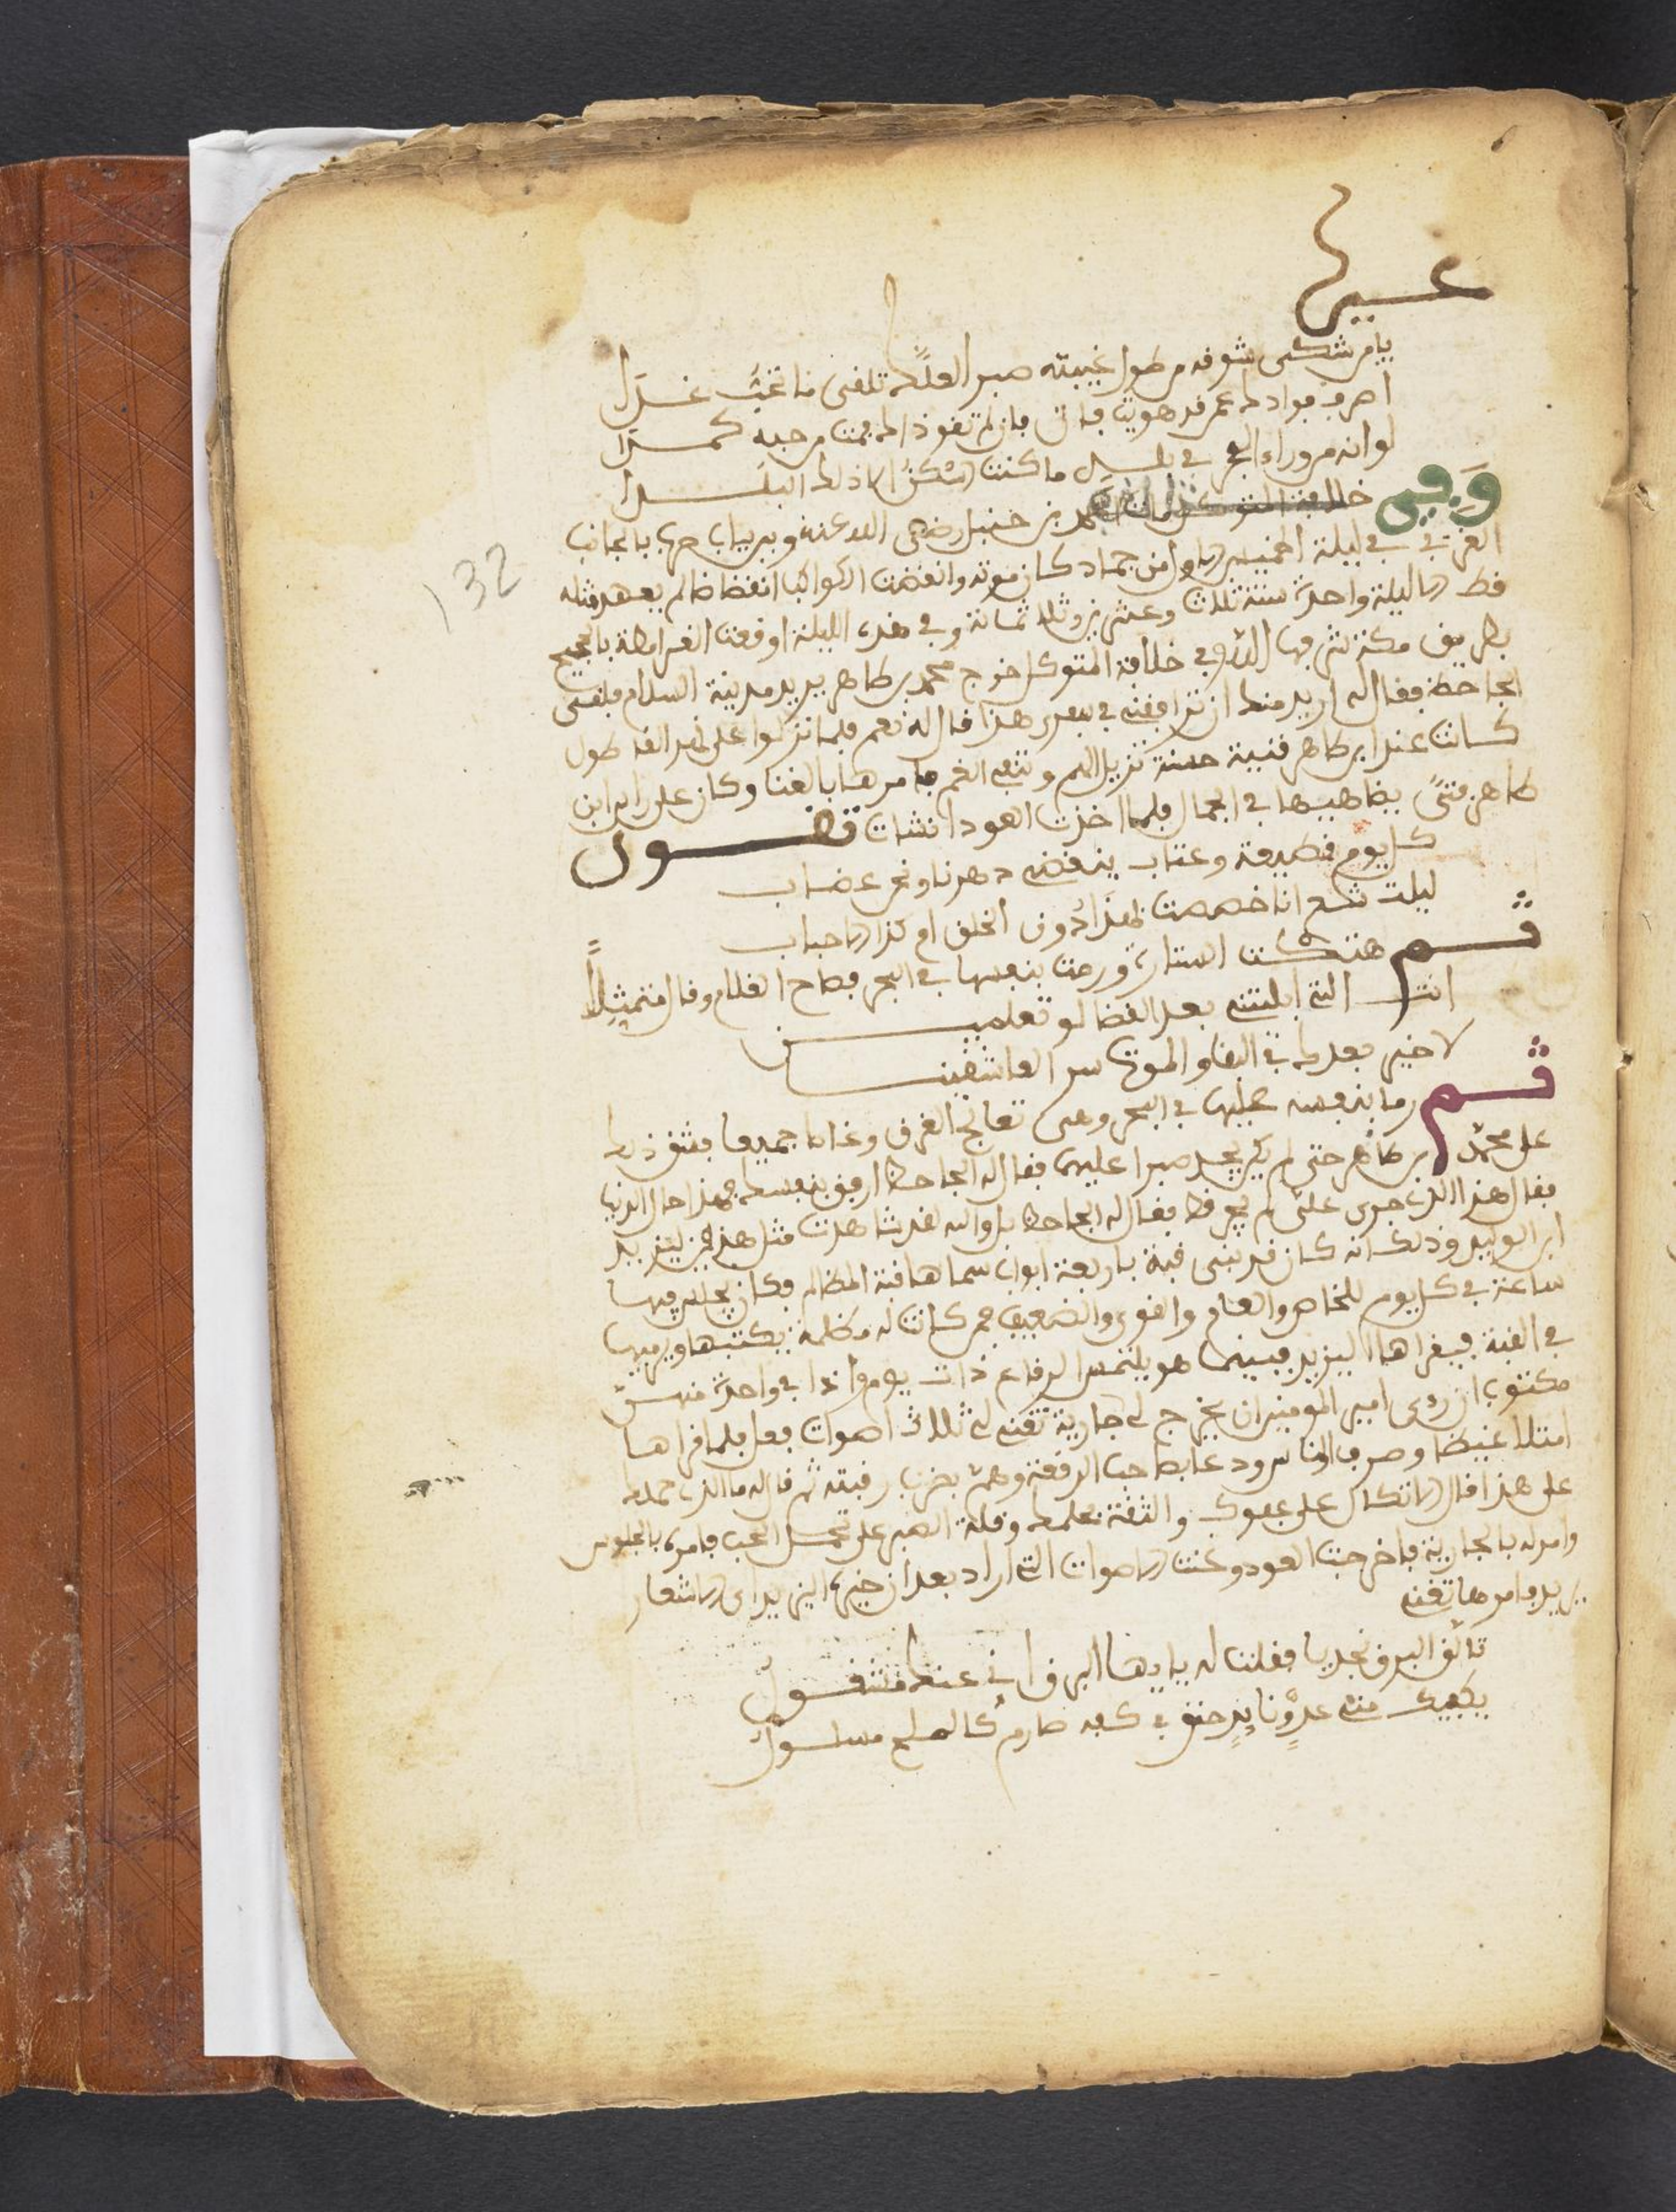 غيره
يا من شكى شوقه من طول غيبته صبرا لعلك تلفى من تحب غدا
اصرف فوادك عمن قد هويت فان لم تقو ذاك مت من حبه كمدا
لو انه من وراء البحر في بلد ما كنت اسكن الا ذلك البلدا
وفي خلافة المتوكل مات احمد بن حنبل رضي الله عنه وبين باب حرب بالجانب
الغربي في ليلة الخميس الاول من جماد كان موته وانقضت الكواكب انقضاضا لم يعهد مثله
قط الا ليلة واحدة سنة ثلاث وعشرين وثلاثمائة وفي هذه الليلة اوقعت القرامطة بالحجيج
بطريق مكة وفي خلافة المتوكل خرج محمد بن طاهر يريد مدينة السلام فلقى
الجاحظ فقال له اريد منك ان ترافقني في سفري هذا قال له نعم فلما نزلوا على نهر الفاطول
كانت عند ابن طاهر قنية حسنة تزيل الهم وتنفي الغم فامرها بالغنا وكان على راس ابن
طاهر فتى يضاهيها في الجمال فلما اخذت العود انشات تقول
كل يوم قطيعة وعتاب ينقضي دهرنا ونحن غضاب
ليت شعري انا خصصت بهذا دون الخلق ام كذا الاحباب
ثم هتكت الستارة ورمت بنفسها في البحر فصاح الغلام وقال متمثلا
انت التي ابليتني بعد القضا لو تعلمين
لا خير بعدك في البقا والموت ستر العاشقين
ثم رما بنفسه عليها في البحر وهي تعالج الغرق وغابا جميعا فشق ذلك
على محمد بن طاهر حتى لم يجد صبرا عليها فقال له الجاحظ ارفق بنفسك فهذا حال الدنيا
فقال هذا الذي جرى علي لم يجر قط فقال له الجاحظ بل والله لقد شاهدت مثل هذه ليزيد
ابن الوليد وذلك انه كان قد بنى قبة باربعة ابواب سماها قبة المظالم وكان يجلس فيها
ساعة في كل يوم للخاص والعام والقوي والضعيف فمن كانت له مظلمة يكتبها ويرميها
في القبة فيقراها اليزيد فبينما هو يلتمس الرقاع ذات يوم واذا في واحدة منهن
مكتوب ان راى امير المومنين ان يخرج لي جارية تغني لي ثلاث اصوات فعل فلما قراها
امتلا غيظا وصرف الناس ودعا بصاحب الرقعة وهم بضرب رقبته ثم قال له ما الذي حملك
على هذا قال الاتكال على عفوك والثقة بحلمك وقلة الصبر على تحمل الحب فامره بالجلوس
وامر له بالجارية فاخرجت العود وغنت الاصوات التي اراد بعد ان خيره اليزيد اي الاشعار
يريد فامرها تغني
تالق البرق نجديا فقلت له يا ايها البرق اني عنك مشغول
يكفيك مني عدو ثاير حنق في كفه صارم كالملح مسلول
132